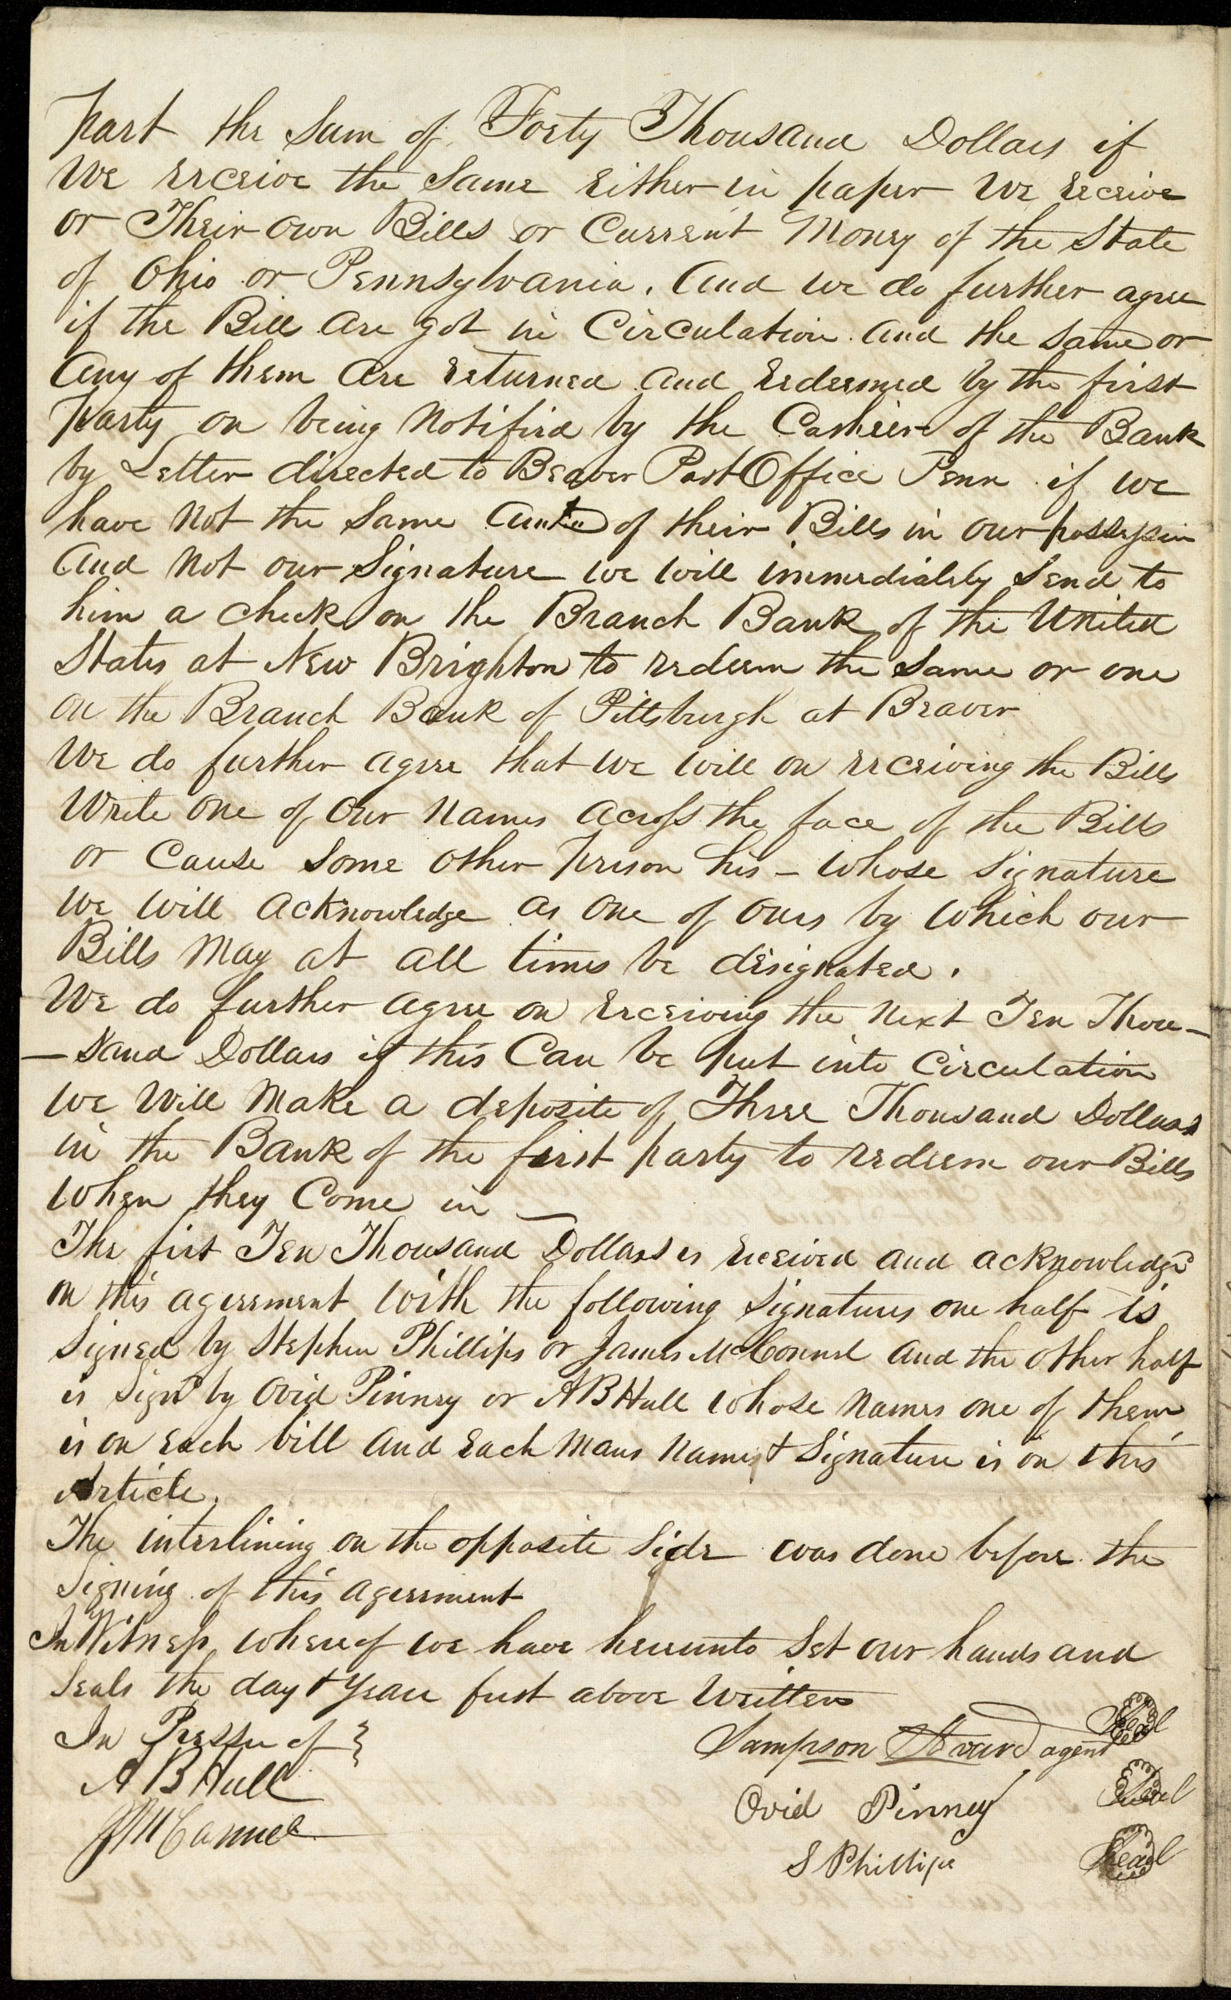 part the Sum of Forty Thousand Dollars if
We receive the Same Either in paper We receive
or Their own Bills or Current Money of the State
of Ohio or Pennsylvania. And we do further agree
if the Bill are got in Circulation and the same or
Any of them Are returned and redeemed by the first
Party on being Notified by the Casheir of the Bank
by Letter directed to Beaver Post Office Penn if we
have Not the Same Amt of their Bills in our possession
And Not our Signature we will immediately Send to
him a check on the Branch Bank of the United
States at New Brighton to redeem the Same or one
on the Branch Bank of Pittsburgh at Beaver
We do further agree that we will on receiving the Bills
Write one of our Names across the face of the Bills
or Cause Some other person his - whose Signature
we will acknowledge as one of ours by which our
Bills May at all times be designated.
We do further agree on receiving the next Ten Thou-
-sand Dollars if this Can be put into Circulation
we will Make a deposite of Three Thousand Dollars
in the Bank of the first party to redeem our Bills
when they Come in -
The first Ten Thousand Dollars is received and acknowledged
on this agreement with the following Signatures one half is
Signed by Stephen Phillips or James McConnel and the other half
is Signd by Ovid Pinney or A B Hull whose names one of them
is on Each bill and Each Mans Name & Signature is on this
Article.
The interlining on the opposite Side was done before the
Signing of this agreement
In Witness whereof we have hereunto Set our hands and
Seals the day & year first above Written
In Presen of } Sampson agent Seal
A B Hull Ovid Pinney Seal
S Phillips Seal